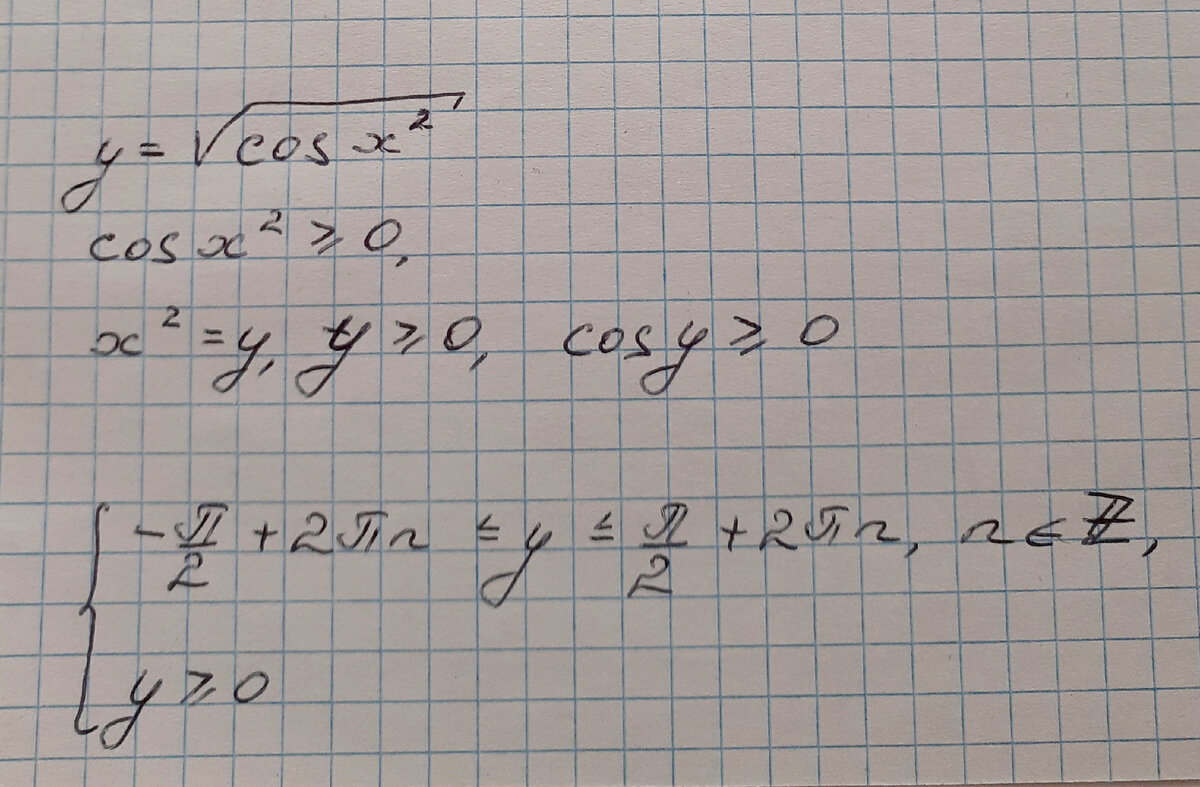 y = √(cos x²)
cos x² ⩾ 0,
x² = y, y ⩾ 0, cos y ⩾ 0
{ -π/2 + 2πn ≤ y ≤ π/2 + 2πn, n ∈ ℤ,
y ⩾ 0